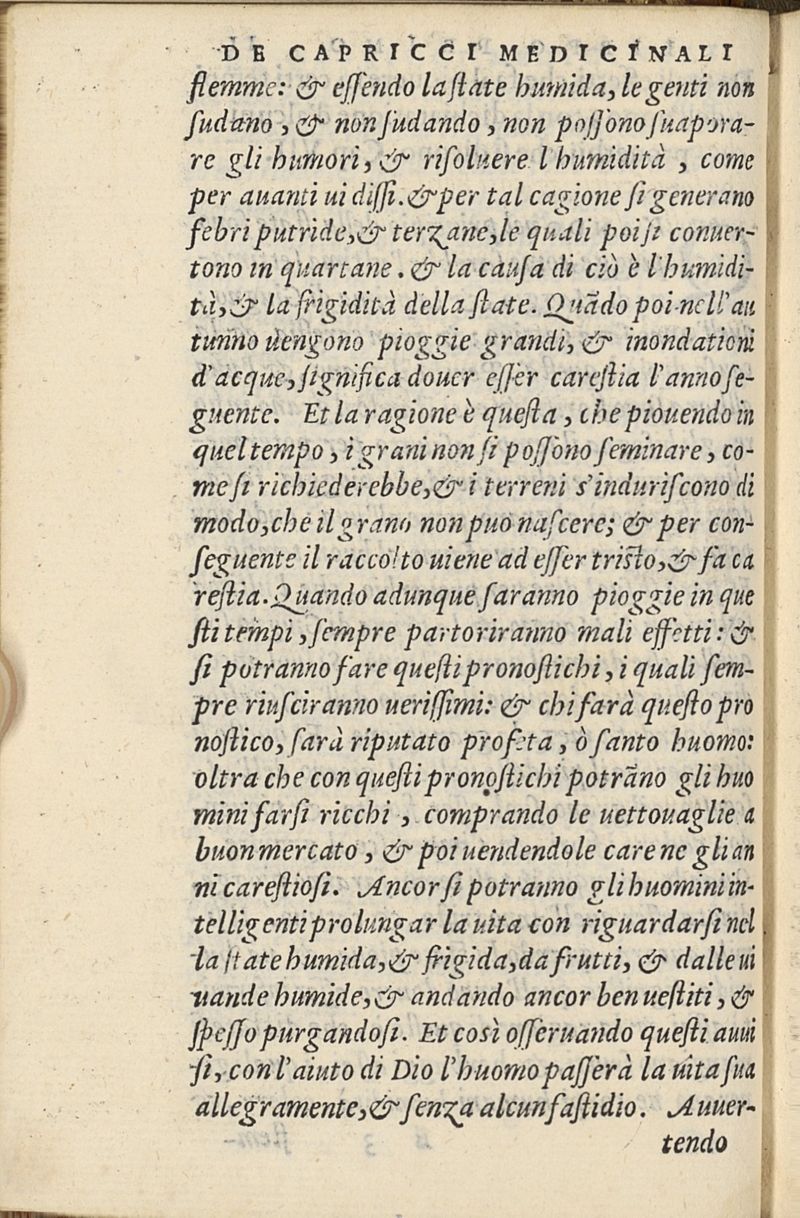 DE CAPRICCI MEDICINALI
flemme: & eſſendo la ſtate humida, le genti non
ſudano, & non ſudando, non poſſono ſuapora-
re gli humori, & riſoluere l'humidità, come
per auanti ui diſſi. & per tal cagione ſi generano
febri putride, & terzane, le quali poi ſi conuer-
tono in quartane. & la cauſa di ciò è l'humidi-
tà, & la frigidità della ſtate. Quãdo poi nell'au
tunno uengono pioggie grandi, & inondationi
d'acque, ſignifica douer eſſer careſtia l'anno ſe-
guente. Et la ragione è queſta, che piouendo in
quel tempo, i grani non ſi poſſono ſeminare, co-
me ſi richiederebbe, & i terreni s'induriſcono di
modo, che il grano non può naſcere; & per con-
ſeguente il raccolto uiene ad eſſer triſto, & fa ca
reſtia. Quando adunque ſaranno pioggie in que
ſti tempi, ſempre partoriranno mali effetti: &
ſi potranno fare queſti pronoſtichi, i quali ſem-
pre riuſciranno ueriſſimi: & chi farà queſto pro
noſtico, ſarà riputato profeta, ò ſanto huomo:
oltra che con queſti pronoſtichi potrãno gli huo
mini farſi ricchi, comprando le uettouaglie a
buon mercato, & poi uendendole care ne gli an
ni careſtioſi. Ancor ſi potranno gli huomini in-
telligenti prolungar la uita con riguardarſi nel
la ſtate humida, & frigida, da frutti, & dalle ui
uande humide, & andando ancor ben ueſtiti, &
ſpeſſo purgandoſi. Et così oſſeruando queſti auui
ſi, con l'aiuto di Dio l'huomo paſſerà la uita ſua
allegramente, & ſenza alcun faſtidio. Auuer-
tendo